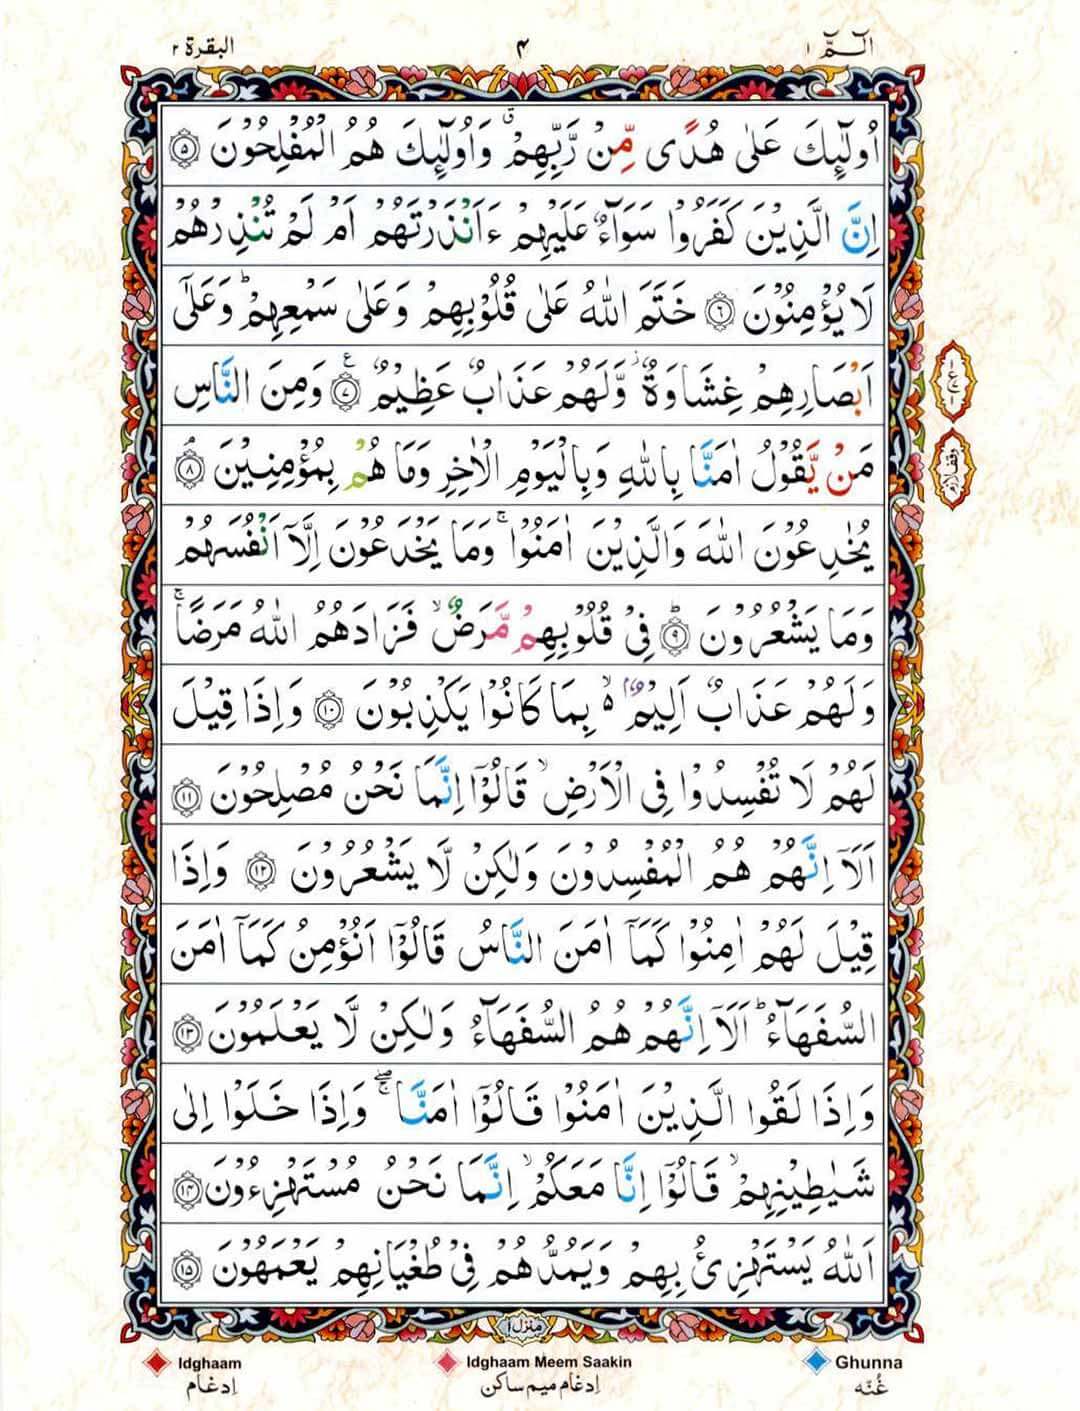 الٓمّٓ ۱ ۴ البقرة ۲
اُولٰٓئِكَ عَلٰى هُدًى مِّنْ رَّبِّهِمْ ۗ وَاُولٰٓئِكَ هُمُ الْمُفْلِحُوْنَ ۝۵
اِنَّ الَّذِيْنَ كَفَرُوْا سَوَآءٌ عَلَيْهِمْ ءَاَنْذَرْتَهُمْ اَمْ لَمْ تُنْذِرْهُمْ
لَا يُؤْمِنُوْنَ ۝۶ خَتَمَ اللّٰهُ عَلٰى قُلُوْبِهِمْ وَعَلٰى سَمْعِهِمْ ؕ وَعَلٰٓى
اَبْصَارِهِمْ غِشَاوَةٌ ؗ وَّلَهُمْ عَذَابٌ عَظِيْمٌ ۝۷ ع وَمِنَ النَّاسِ
مَنْ يَّقُوْلُ اٰمَنَّا بِاللّٰهِ وَبِالْيَوْمِ الْاٰخِرِ وَمَا هُمْ بِمُؤْمِنِيْنَ ۝۸ۘ
وقف لازم
يُخٰدِعُوْنَ اللّٰهَ وَالَّذِيْنَ اٰمَنُوْا ۚ وَمَا يَخْدَعُوْنَ اِلَّآ اَنْفُسَهُمْ
وَمَا يَشْعُرُوْنَ ۝۹ؕ فِيْ قُلُوْبِهِمْ مَّرَضٌ ۙ فَزَادَهُمُ اللّٰهُ مَرَضًا ۚ
وَلَهُمْ عَذَابٌ اَلِيْمٌۢ ۙ۬ بِمَا كَانُوْا يَكْذِبُوْنَ ۝۱۰ وَاِذَا قِيْلَ
لَهُمْ لَا تُفْسِدُوْا فِى الْاَرْضِ ۙ قَالُوْٓا اِنَّمَا نَحْنُ مُصْلِحُوْنَ ۝۱۱
اَلَآ اِنَّهُمْ هُمُ الْمُفْسِدُوْنَ وَلٰكِنْ لَّا يَشْعُرُوْنَ ۝۱۲ وَاِذَا
قِيْلَ لَهُمْ اٰمِنُوْا كَمَآ اٰمَنَ النَّاسُ قَالُوْٓا اَنُؤْمِنُ كَمَآ اٰمَنَ
السُّفَهَآءُ ؕ اَلَآ اِنَّهُمْ هُمُ السُّفَهَآءُ وَلٰكِنْ لَّا يَعْلَمُوْنَ ۝۱۳
وَاِذَا لَقُوا الَّذِيْنَ اٰمَنُوْا قَالُوْٓا اٰمَنَّا ۖۚ وَاِذَا خَلَوْا اِلٰى
شَيٰطِيْنِهِمْ ۙ قَالُوْٓا اِنَّا مَعَكُمْ ۙ اِنَّمَا نَحْنُ مُسْتَهْزِءُوْنَ ۝۱۴
اَللّٰهُ يَسْتَهْزِئُ بِهِمْ وَيَمُدُّهُمْ فِيْ طُغْيَانِهِمْ يَعْمَهُوْنَ ۝۱۵
منزل ۱
Idghaam Idghaam Meem Saakin Ghunna
إدغام إدغام ميم ساكن غُنّه